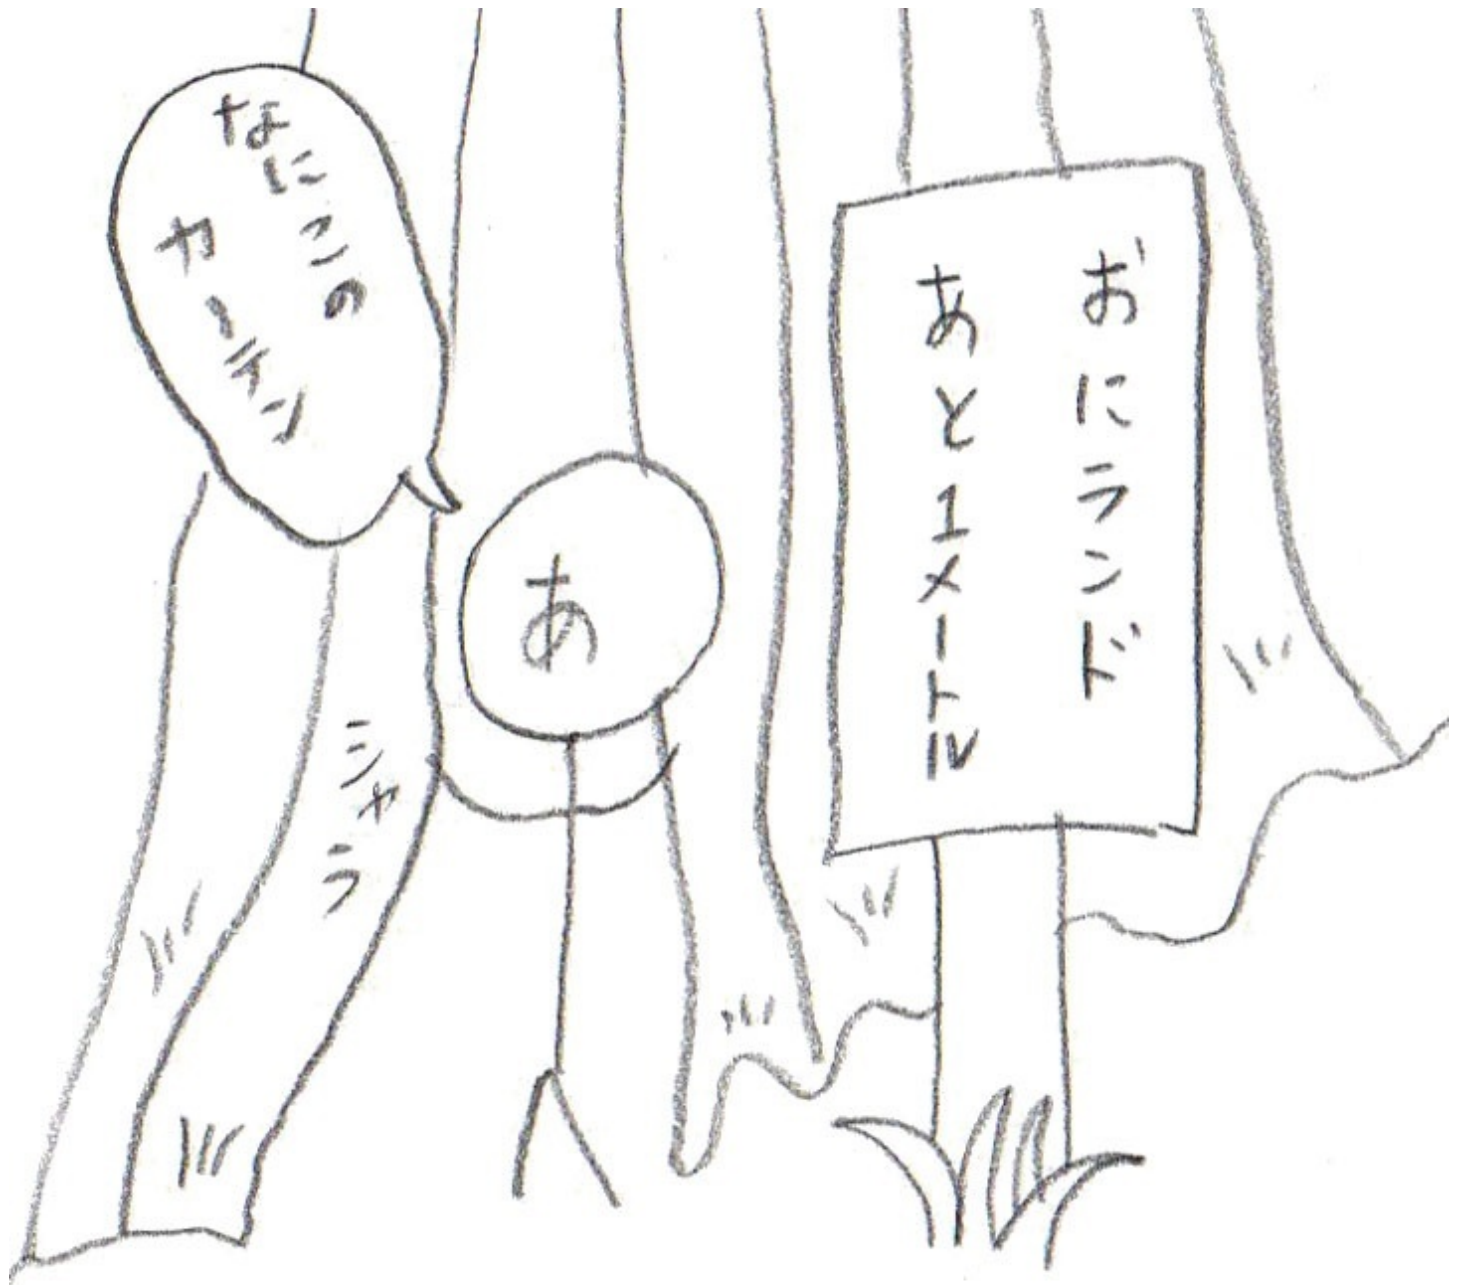 おにランド
あと1メートル
なにこの
カーテン
あ
シャラ